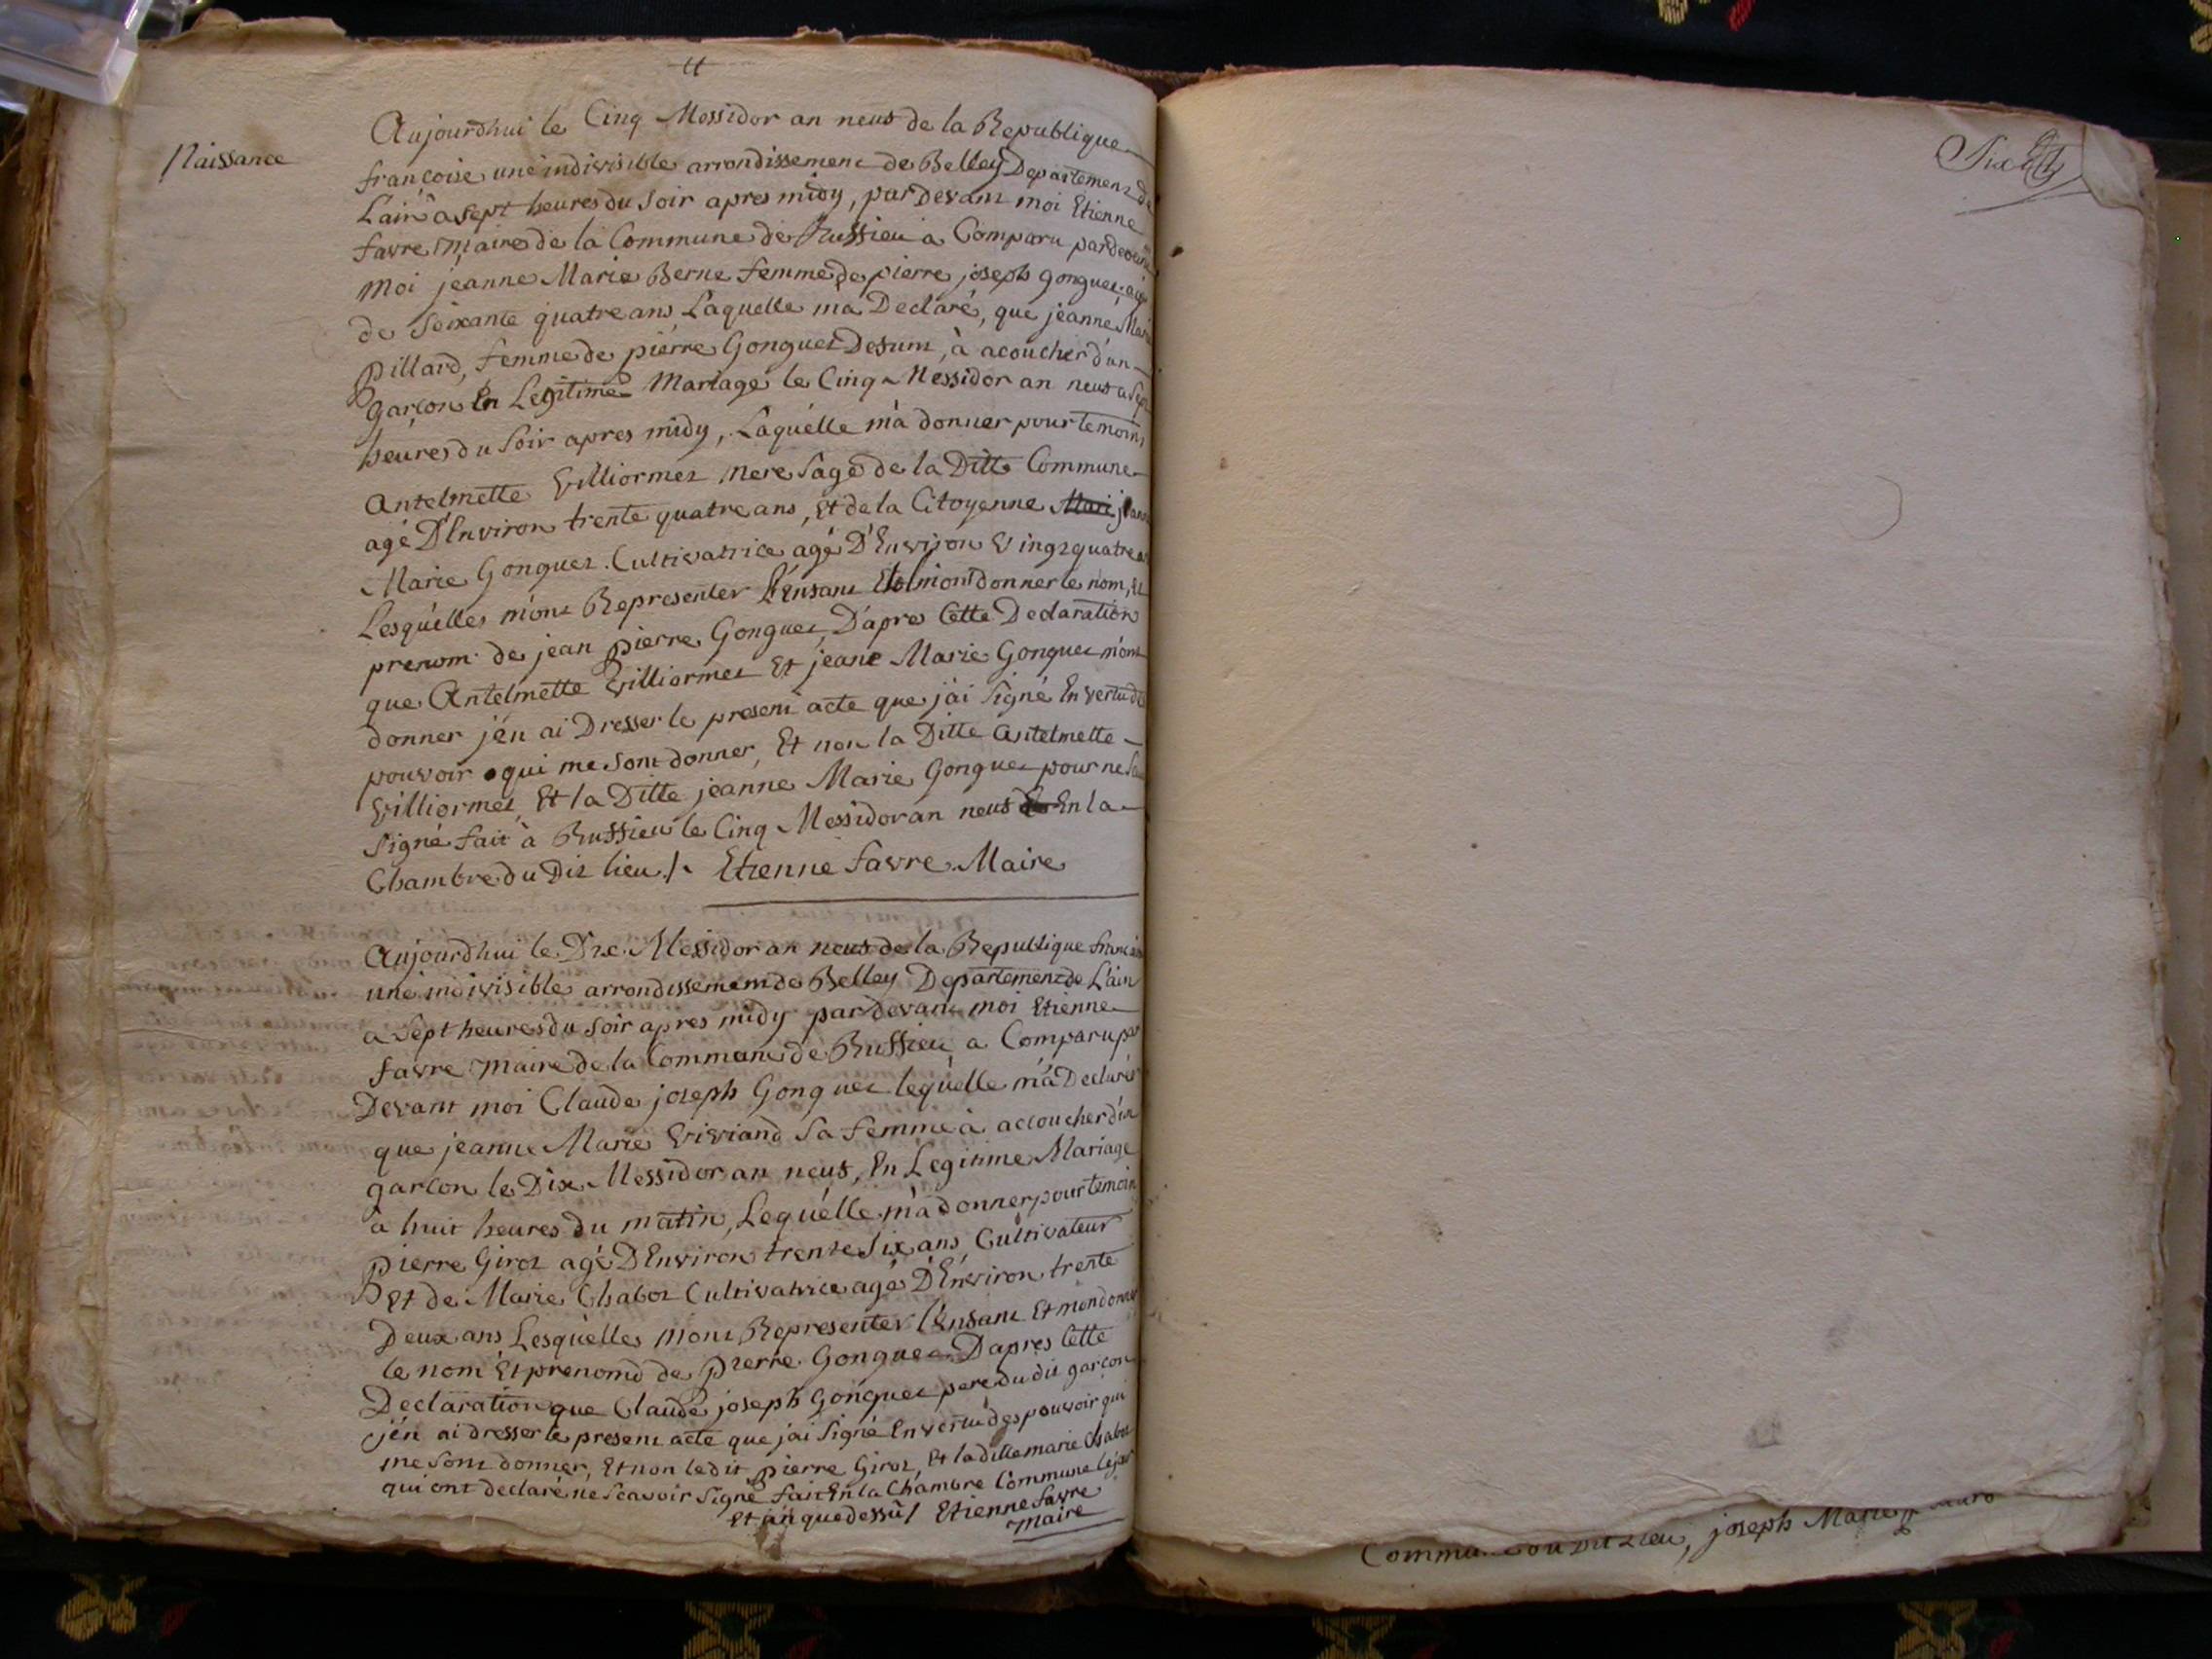 Naissance
Aujourdhui le Cinq Messidor an neuf de la Republique
francoise une indivisible arrondissement de Belley Departement de
L'ain a sept heures du soir apres midy, par Devant moi Etienne
favre maire de la Commune de Ruffieu a Comparu pardevant
moi jeanne Marie Berne femme de pierre joseph Gonguet agé
de soixante quatre ans Laquelle ma Declaré, que jeanne Marie
Pillard, femme de pierre Gonguet Desunt, à acoucher d'un
garcon En Legitime Mariage le Cinq Messidor an neuf a sept
heures du soir apres midy, Laquelle m'a donner pour temoins
Antelmette Villiormet Mere sage de la Ditte Commune
agé D'Environ trente quatre ans, Et de la Citoyenne Mari jeanne
Marie Gonguet Cultivatrice agé D'Environ Vingt quatre ans
Lesquelles m'ont Representer L'Enfant Et m'ont donner le nom, Et
prenom de jean pierre Gonguet, D'apres Cette Declaration
que Antelmette Villiormet Et jeane Marie Gonguet m'ont
donner j'en ai Dresser le present acte que j'ai Signé En vertu des
pouvoir qui me sont donner, Et non la Ditte Antelmette
Villiormet Et la Ditte jeanne Marie Gonguet pour ne
Signé fait à Ruffieu le Cinq Messidor an neuf En la
Chambre du Dit lieu /. Etienne favre Maire
Aujourdhui le Dix Messidor an neuf de la Republique
une indivisible arrondissement de Belley Departement de L'ain
a sept heures du soir apres midy par devant moi Etienne
favre maire de la Commune de Ruffieu a Comparu par
Devant moi Claude joseph Gonguet lequelle m'a Declarer
que jeanne Marie Viviand sa femme à accoucher d'un
garcon le Dix Messidor an neuf, En Legitime Mariage
à huit heures du matin, Lequelle m'a donner pour temoin
pierre Girot agé D'Environ trente six ans Cultivateur
Et de Marie Chabot Cultivatrice agé D'Environ trente
Deux ans Lesquelles mont Representer l'Enfant Et mon donner
le nom Et prenom de pierre Gonguet D'apres Cette
Declaration que Claude joseph Gonguet pere du dit garcon
j'en ai dresser le present acte que j'ai Signé En vertu des pouvoir qui
me sont donner, Et non le dit pierre Girot, Et la ditte marie Chabot
qui ont declaré ne Scavoir Signé fait En la Chambre Commune le jour
Et an que dessu / Etienne favre
maire
joseph Marie